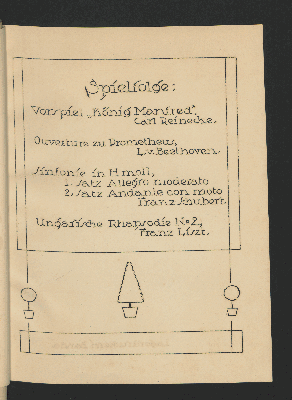 Spielfolge:
Vorspiel „König Manfred“,
Carl Reinecke.
Ouverture zu Prometheus,
L.v. Beethoven.
Sinfonie in H moll,
1. Satz Allegro moderato
2. Satz Andante con moto
Franz Schubert.
Ungarische Rhapsodie No 2,
Franz Liszt.